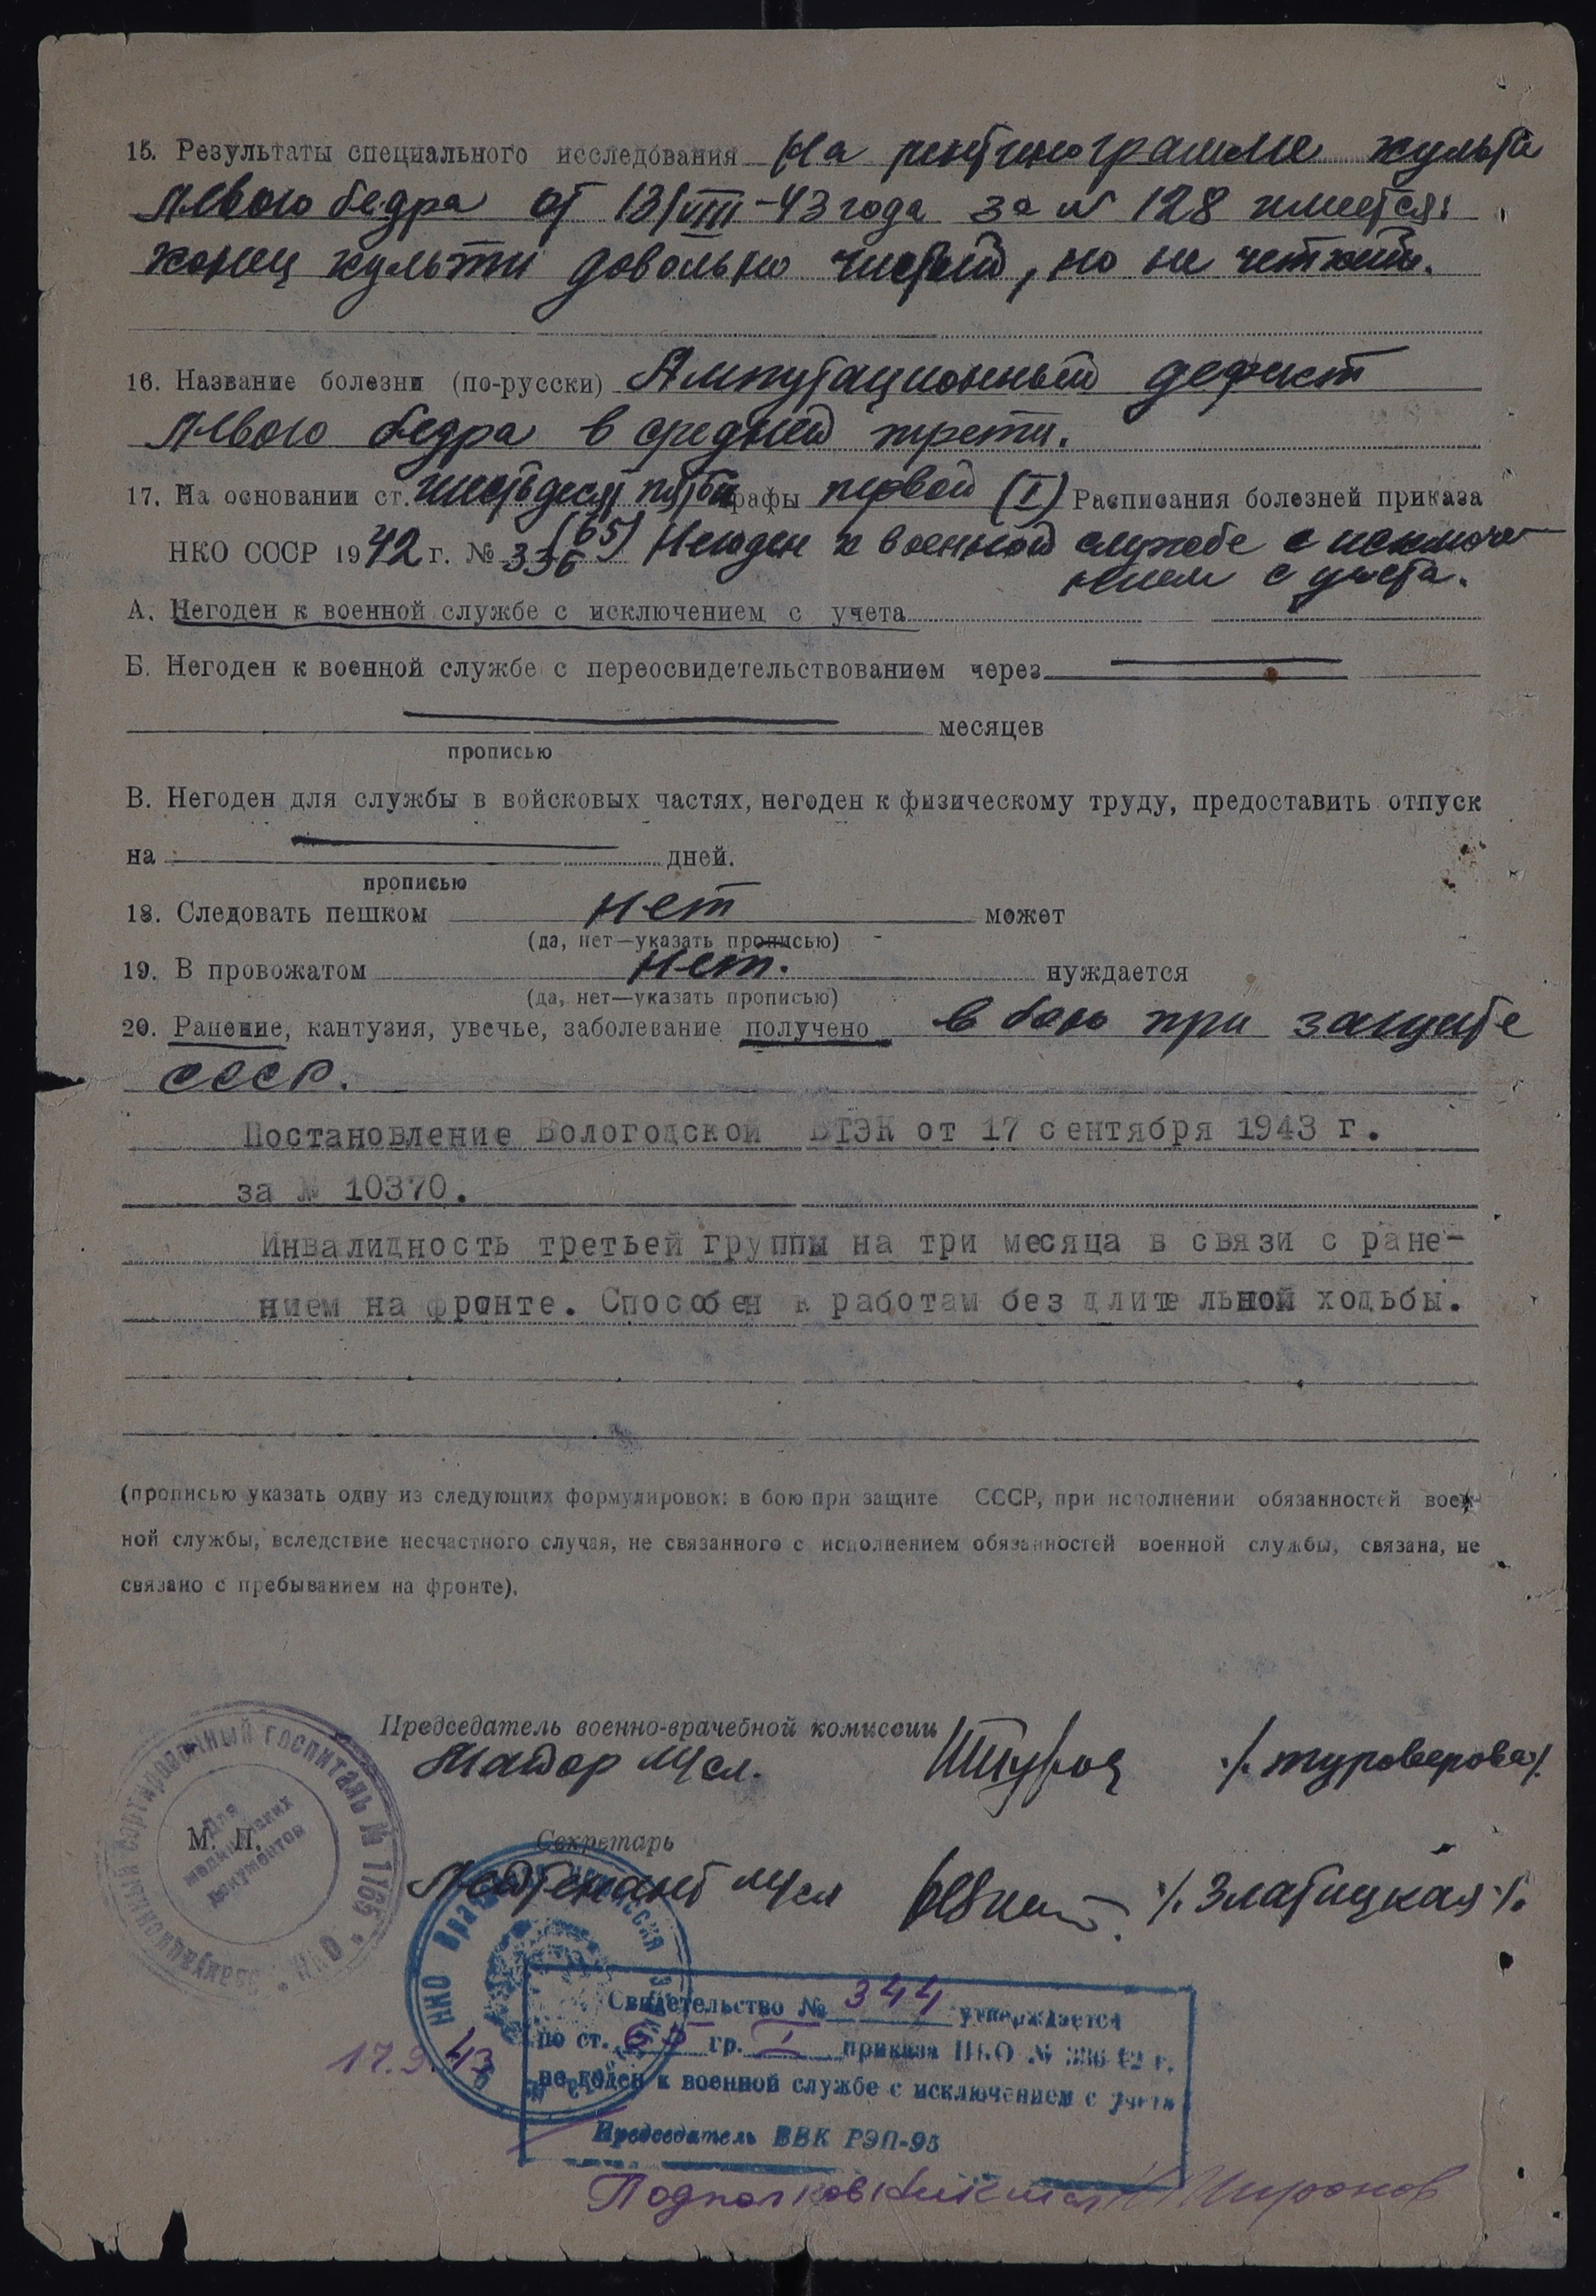 15. Результаты специального исследования На рентгенограмме культи
левого бедра от 13/VIII-43 года за № 128 имеется:
конец культи довольно чистый, но не четкий.
16. Название болезни (по-русски) Ампутационный дефект
левого бедра в средней трети.
17. На основании ст. шестьдесят пятой графы первой (I) Расписания болезней приказа
(65)
НКО СССР 1942 г. № 336 Негоден к военной службе с исключе-
нием с учета.
А. Негоден к военной службе с исключением с учета
Б. Негоден к военной службе с переосвидетельствованием через
месяцев
прописью
В. Негоден для службы в войсковых частях, негоден к физическому труду, предоставить отпуск
на дней.
прописью
18. Следовать пешком нет может
(да, нет—указать прописью)
19. В провожатом нет. нуждается
(да, нет—указать прописью)
20. Ранение, кантузия, увечье, заболевание получено в бою при защите
СССР.
Постановление Вологодской ВТЭК от 17 сентября 1943 г.
за № 10370.
Инвалидность третьей группы на три месяца в связи с ране-
нием на фронте. Способен к работам без длительной ходьбы.
(прописью указать одну из следующих формулировок: в бою при защите СССР, при исполнении обязанностей воен-
ной службы, вследствие несчастного случая, не связанного с исполнением обязанностей военной службы, связана, не
связано с пребыванием на фронте).
Председатель военно-врачебной комиссии
Майор м/сл. /.Туроверова/.
М. П.
Эвакуационный сортировочный госпиталь № 1165 * НКО *
Для медицинских документов
Секретарь
Лейтенант м/сл /.Златицкая/.
НКО Врачебная комиссия
Свидетельство № 344 утверждается
по ст. 65 гр. I приказа НКО № 336 42 г.
не годен к военной службе с исключением с учета
17.9.43
Председатель ВВК РЭП-95
Подполковник м/сл Миронов